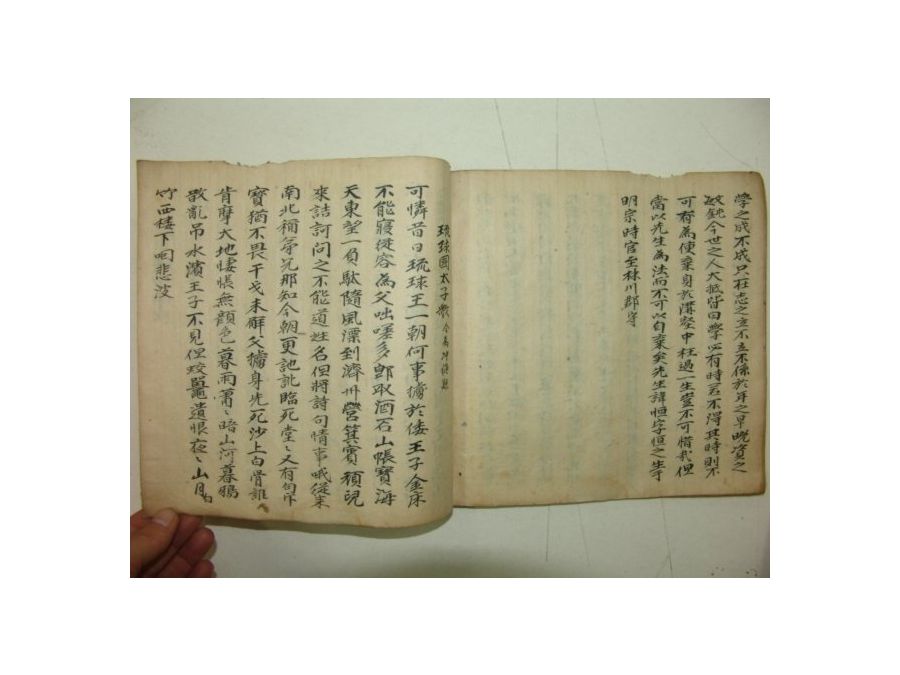 學之成不成只在志之立不立不係於年之早晩資之
敏鈍今世之人大抵皆曰學必有時若不得其時則不
可有為使棄身於溝壑中枉過一生豈不可惜哉但
當以先生為法而不可以自棄矣先生諱恒字恒之生于
明宗時官至林川郡守
琉球國太子歌
可憐昔日琉球王一朝何事擄於倭王子金床
不能寢從容為父咄嗟多郎取酒石山帳寶海
天東望一負駄隨風漂到濟州營箕賓須臾
來詰訶問之不能道姓名但將詩句情事哦從來
南北稱弟兄那知今朝更訑訛臨死堂〻又有句
寶猶不畏干戈未解父擄身先死沙上白骨誰
肯摩大地悽悵無顔色暮雨蕭〻暗山河暮鴉
散亂吊水濱王子不見但蛟鼉遺恨夜〻山月白
竹西樓下咽悲波